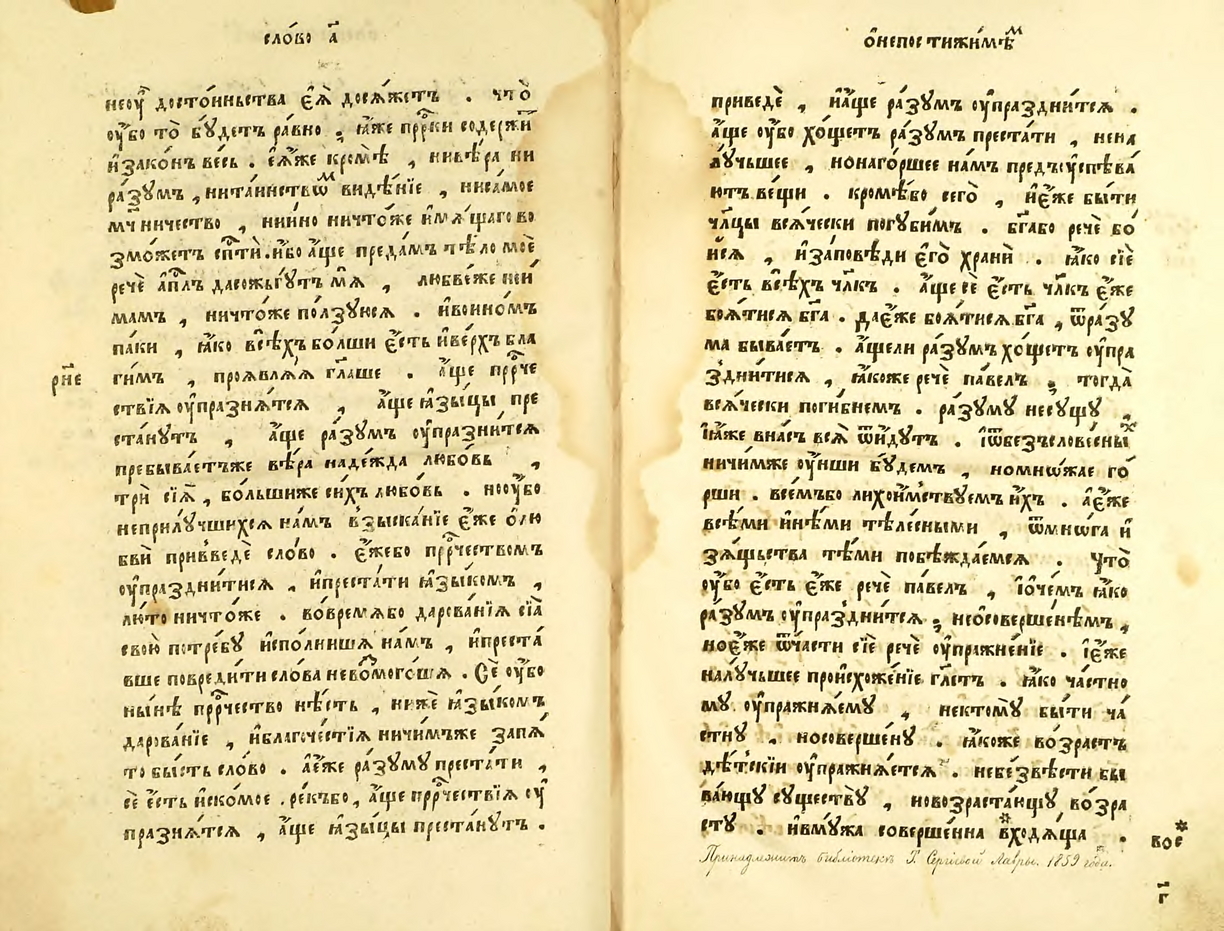 сло́во а҃
неоу҆̀ досто́иньства є҆ѧ̀ досѧ́жетъ . что̀
оу҆́бо то̀ бꙋ́детъ ра́вно ; ꙗ҆́же прⷪ҇ро́ки содержи́
и҆зако́нъ весь . є҆ѧ́же кромѣ̀ , нивѣ́ра ни
ра́зꙋмъ , нита́инствѡⷨ ви́дѣнїе , ниса́мое
мч҃ничество , нии́но ничто́же и҆мꙋ́щаго во
змо́жетъ сп҃стѝ . и҆́бо а҆́ще преда́мъ тѣ́ло моѐ
речѐ а҆пⷭ҇лъ дасожьгꙋ́тъ мѧ̀ , любве́же неи
мамъ , ничто́же по́лзꙋюсѧ . и҆вои́номъ
па́ки , ꙗ҆́ко всѣ́хъ бо́лши є҆́сть и҆ве́рхъ бла
рн҃е
ги́мъ , проѧвлѧ́ѧ гл҃аше . а҆́ще прⷪ҇ро́че
ствїѧ оу҆празнѧ́тсѧ , а҆́ще ꙗ҆зы́цы пре
ста́нꙋтъ , а҆́ще ра́зꙋмъ оу҆празни́тсѧ
пребыва́етъже вѣ́ра наде́жда любо́вь ,
трѝ сїѧ̀ , бо́льшиже си́хъ любо́вь . нооу҆́бо
неприлꙋ́чшихсѧ на́мъ взыска́нїе є҆́же ѡ҆лю
бвѝ приведѐ сло́во . є҆́жебо прⷪ҇ро́чествомъ
оу҆праздни́тисѧ , и҆преста́ти ꙗ҆зы́комъ ,
лю́то ничто́же . вовре́мѧбо дарова́нїѧ сїѧ̀
свою̀ потре́бꙋ и҆спо́лнишѧ на́мъ , и҆преста́
вше повреди́ти сло́ва невомого́шѧ . Сѐ оу҆́бо
ны́нѣ прⷪ҇ро́чество нѣ́сть , нижѐ ꙗ҆зы́комъ
дарова́нїе , и҆благоче́стїѧ ничи́мъже запѧ́
то бы́сть сло́во . а҆є҆́же ра́зꙋмꙋ преста́ти ,
сѐ є҆́сть и҆ско́мое . ре́къбо , а҆́ще прⷪ҇ро́чествїѧ оу҆
празнѧ́тсѧ , а҆́ще ꙗ҆зы́цы преста́нꙋтъ .
ѡ҆непостижи́мѣⷨ
приведѐ , и҆а҆́ще ра́зꙋмъ оу҆праздни́тсѧ .
а҆́ще оу҆́бо хо́щетъ ра́зꙋмъ преста́ти , нена
лꙋ́чьшее , нонаго́ршее на́мъ предъꙋспѣва́
ютъ ве́щи . кромѣ́бо сего̀ , и҆є҆́же бы́ти
чл҃цы всѧ́чески погꙋби́мъ . бг҃або речѐ бо́
исѧ , и҆за́повѣди є҆го̀ хранѝ . ꙗ҆́ко сїѐ
є҆́сть всѣ́хъ чл҃къ . а҆́ще сѐ є҆́сть чл҃къ є҆́же
боѧ́тисѧ бг҃а . дає҆́же боѧ́тисѧ бг҃а , ѿра́зꙋ
ма быва́етъ . а҆́щели ра́зꙋмъ хо́щетъ оу҆пра
здни́тисѧ , ꙗ҆́коже речѐ па́велъ ; тогда̀
всѧ́чески поги́бнемъ . ра́зꙋмꙋ несꙋ́щꙋ ,
ꙗ҆́же вна́съ всѧ̀ ѿи́дꙋтъ . і҆ѿбезъслове́сныⷯ
ничи́мже оу҆́нши бꙋ́демъ , номно́жае го́
рши . все́мъбо лихои́мствꙋемъ и҆́хъ . а҆є҆́же
все́ми и҆нѣ́ми тѣле́сными , ѿмнѡ́га и҆
зѧ́щьства тѣ́ми побѣжда́емсѧ . Что̀
оу҆́бо є҆́сть є҆́же речѐ па́велъ , і҆о҆че́мъ ꙗ҆́ко
ра́зꙋмъ оу҆праздни́тсѧ ; неосоверше́нѣмъ ,
ноє҆́же ѿча́сти сїѐ речѐ оу҆пражне́нїе . і҆є҆́же
налꙋ́чьшее происхоже́нїе гл҃етъ . ꙗ҆́ко ча́стно
мꙋ оу҆пражнѧ́емꙋ , нектомꙋ̀ бы́ти ча́
стнꙋ , носоверше́нꙋ . ꙗ҆́коже во́зрастъ
дѣ́тскїи оу҆пражнѧ́етсѧ . небезвѣ́сти бы
ва́ющꙋ сꙋществꙋ̀ , новозраста́ющꙋ во́зра
стꙋ . и҆вмꙋ́жа соверше́нна входѧ́ща .
вое
Принадлежитъ библіотекѣ Т. Сергіевой Лавры. 1859 года.
г҃